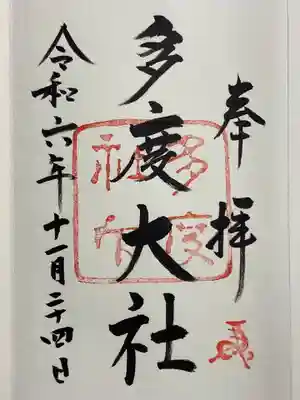 奉拝
多度大社
多度大社
令和六年十一月二十四日